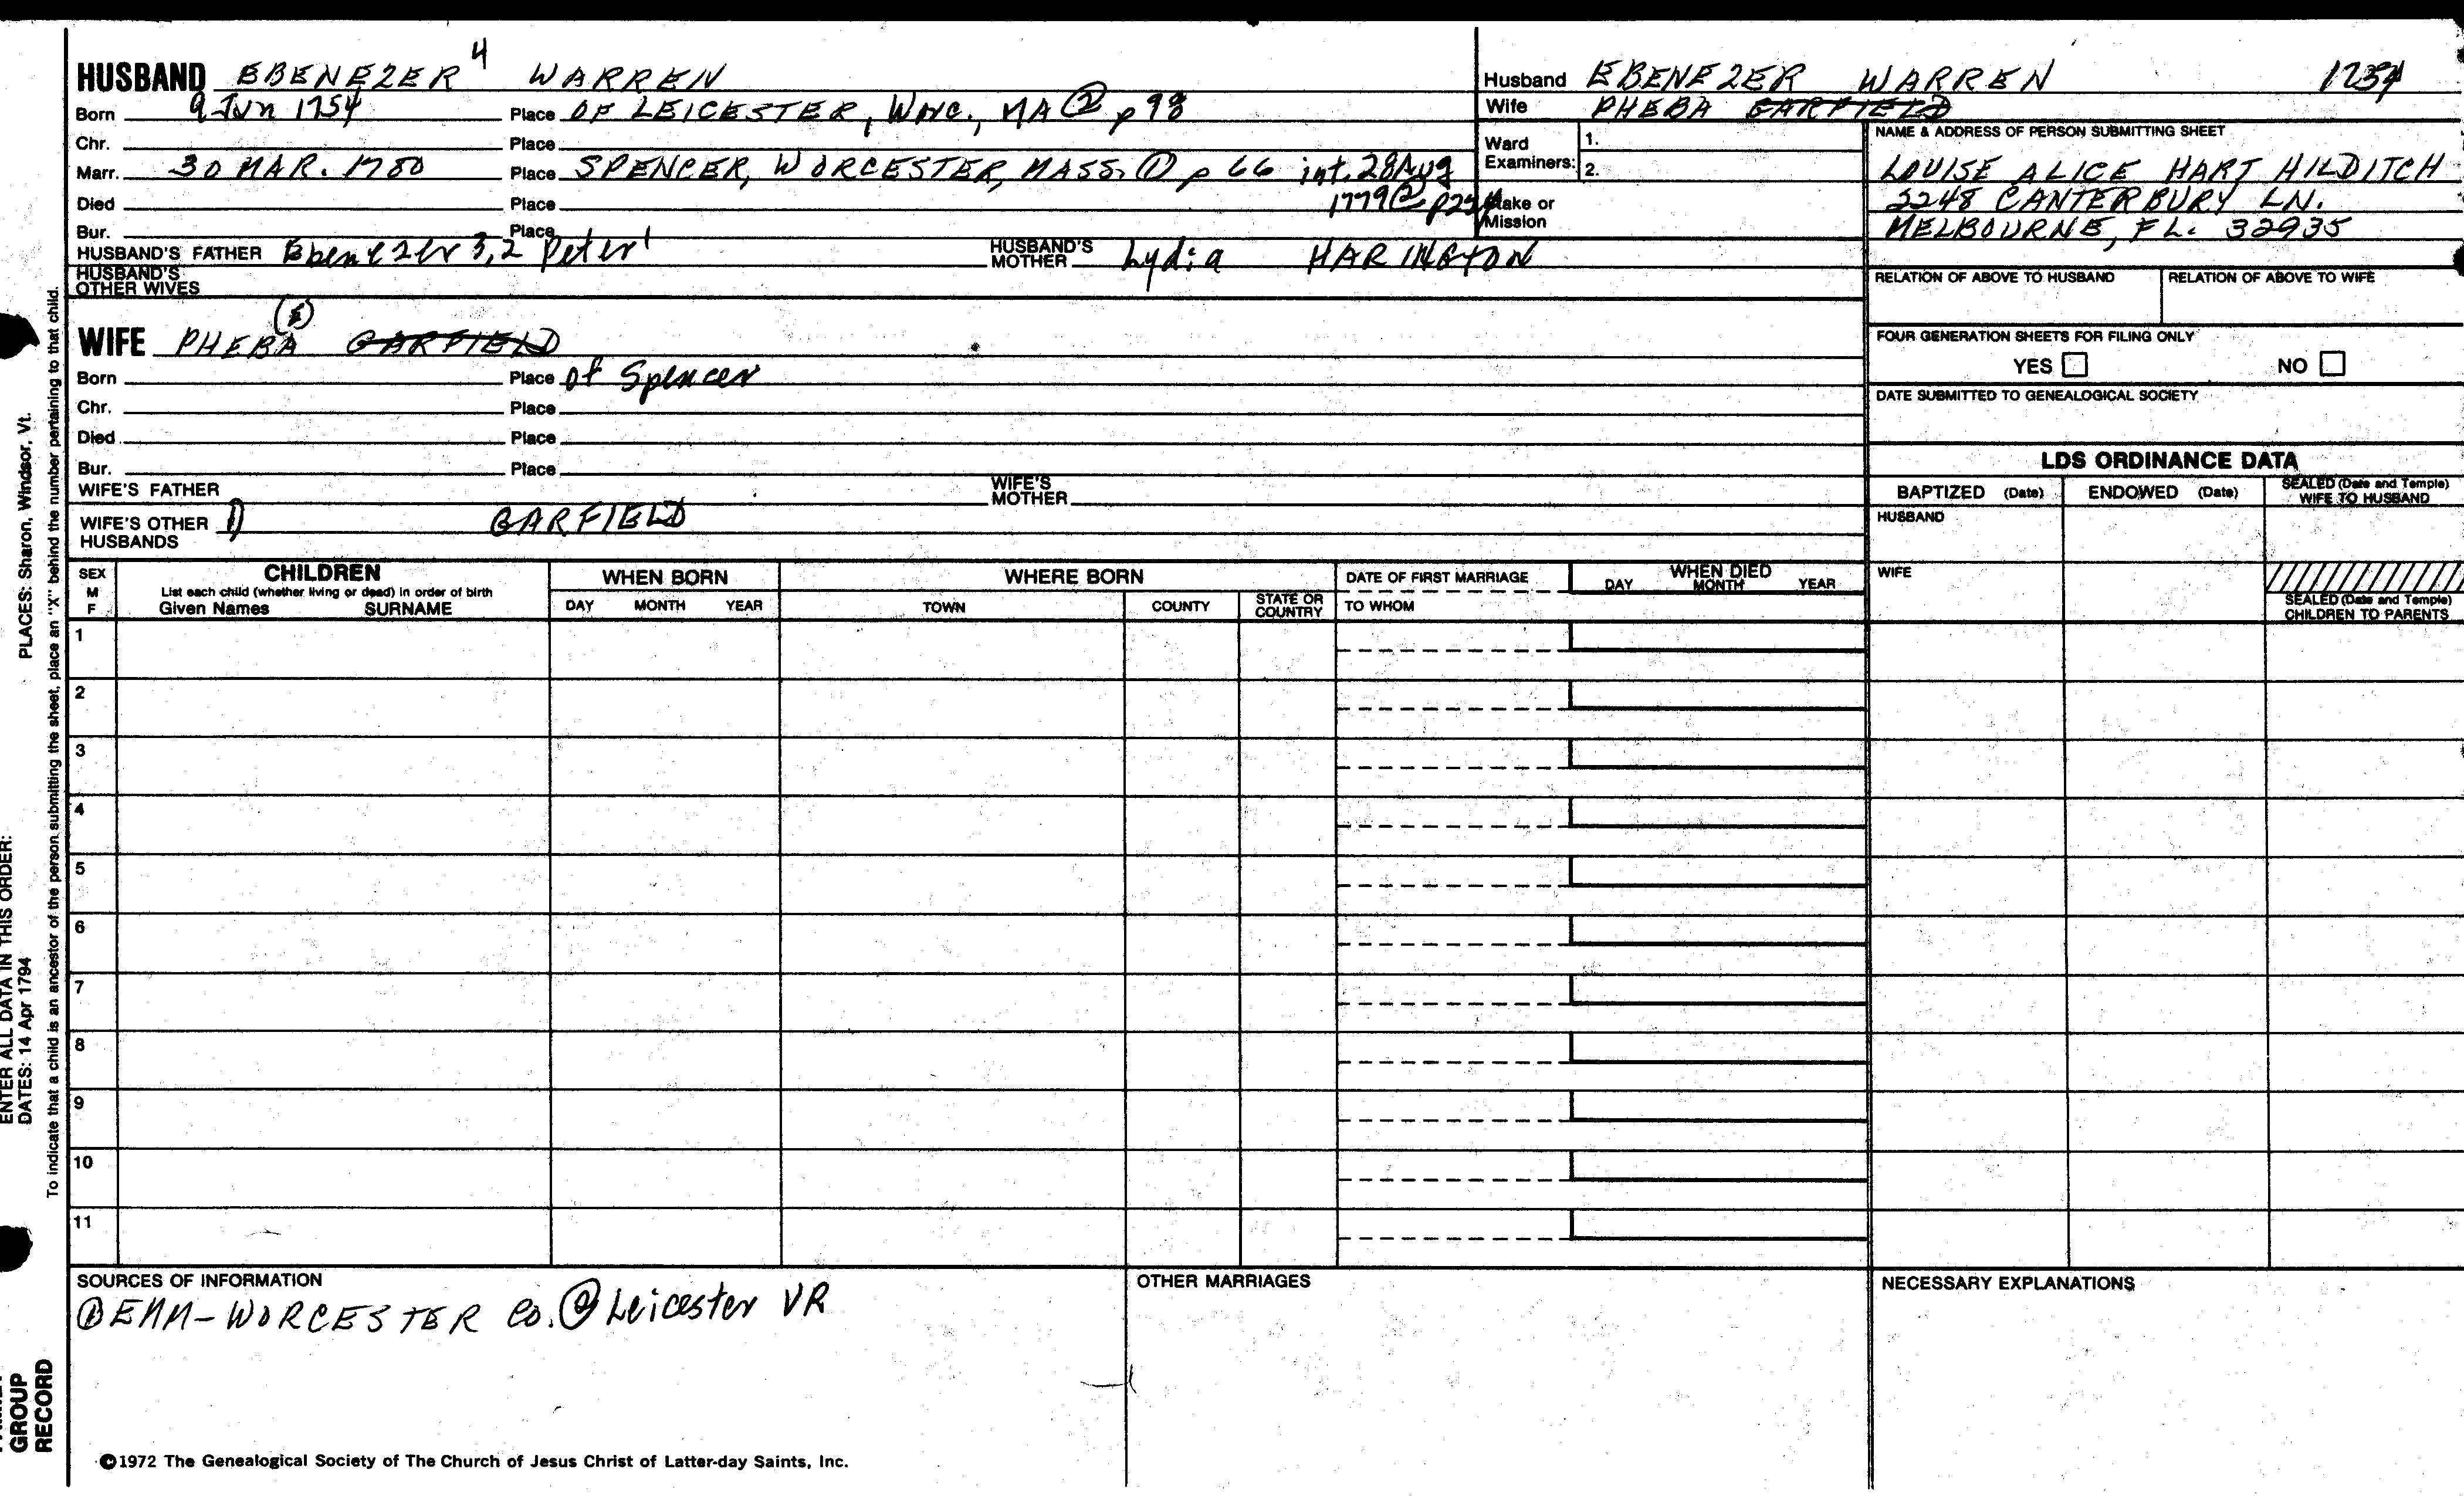 HUSBAND EBENEZER 4 WARREN
Born 9 Jun 1754 Place OF LEICESTER, WORC., MA ② p 98
Chr. Place
Marr. 30 MAR. 1780 Place SPENCER, WORCESTER, MASS. ① p 66 int. 28 Aug
1779 ②
Died Place
Bur. Place
HUSBAND'S FATHER Ebenezer 3,2 Peter 1 HUSBAND'S MOTHER Lydia HARINGTON
HUSBAND'S
OTHER WIVES
WIFE PHEBA GARFIELD
Born Place of Spencer
Chr. Place
Died Place
Bur. Place
WIFE'S FATHER WIFE'S MOTHER
WIFE'S OTHER 1) GARFIELD
HUSBANDS
Husband EBENEZER WARREN 1754
Wife PHEBA GARFIELD
Ward Examiners: 1.
2.
Stake or
Mission
NAME & ADDRESS OF PERSON SUBMITTING SHEET
LOUISE ALICE HART HILDITCH
2248 CANTERBURY LN.
MELBOURNE, FL. 32935
RELATION OF ABOVE TO HUSBAND RELATION OF ABOVE TO WIFE
FOUR GENERATION SHEETS FOR FILING ONLY
YES NO
DATE SUBMITTED TO GENEALOGICAL SOCIETY
LDS ORDINANCE DATA
BAPTIZED (Date) ENDOWED (Date) SEALED (Date and Temple) WIFE TO HUSBAND
HUSBAND
WIFE
SEALED (Date and Temple)
CHILDREN TO PARENTS
SEX
M
F
CHILDREN
List each child (whether living or dead) in order of birth
Given Names SURNAME
WHEN BORN
DAY MONTH YEAR
WHERE BORN
TOWN COUNTY STATE OR COUNTRY
DATE OF FIRST MARRIAGE
TO WHOM
WHEN DIED
DAY MONTH YEAR
1
2
3
4
5
6
7
8
9
10
11
SOURCES OF INFORMATION
① EMM-WORCESTER CO. ② Leicester VR
OTHER MARRIAGES
NECESSARY EXPLANATIONS
©1972 The Genealogical Society of The Church of Jesus Christ of Latter-day Saints, Inc.
GROUP
RECORD
ENTER ALL DATA IN THIS ORDER:
DATES: 14 Apr 1794 PLACES: Sharon, Windsor, Vt.
To indicate that a child is an ancestor of the person submitting the sheet, place an "X" behind the number pertaining to that child.